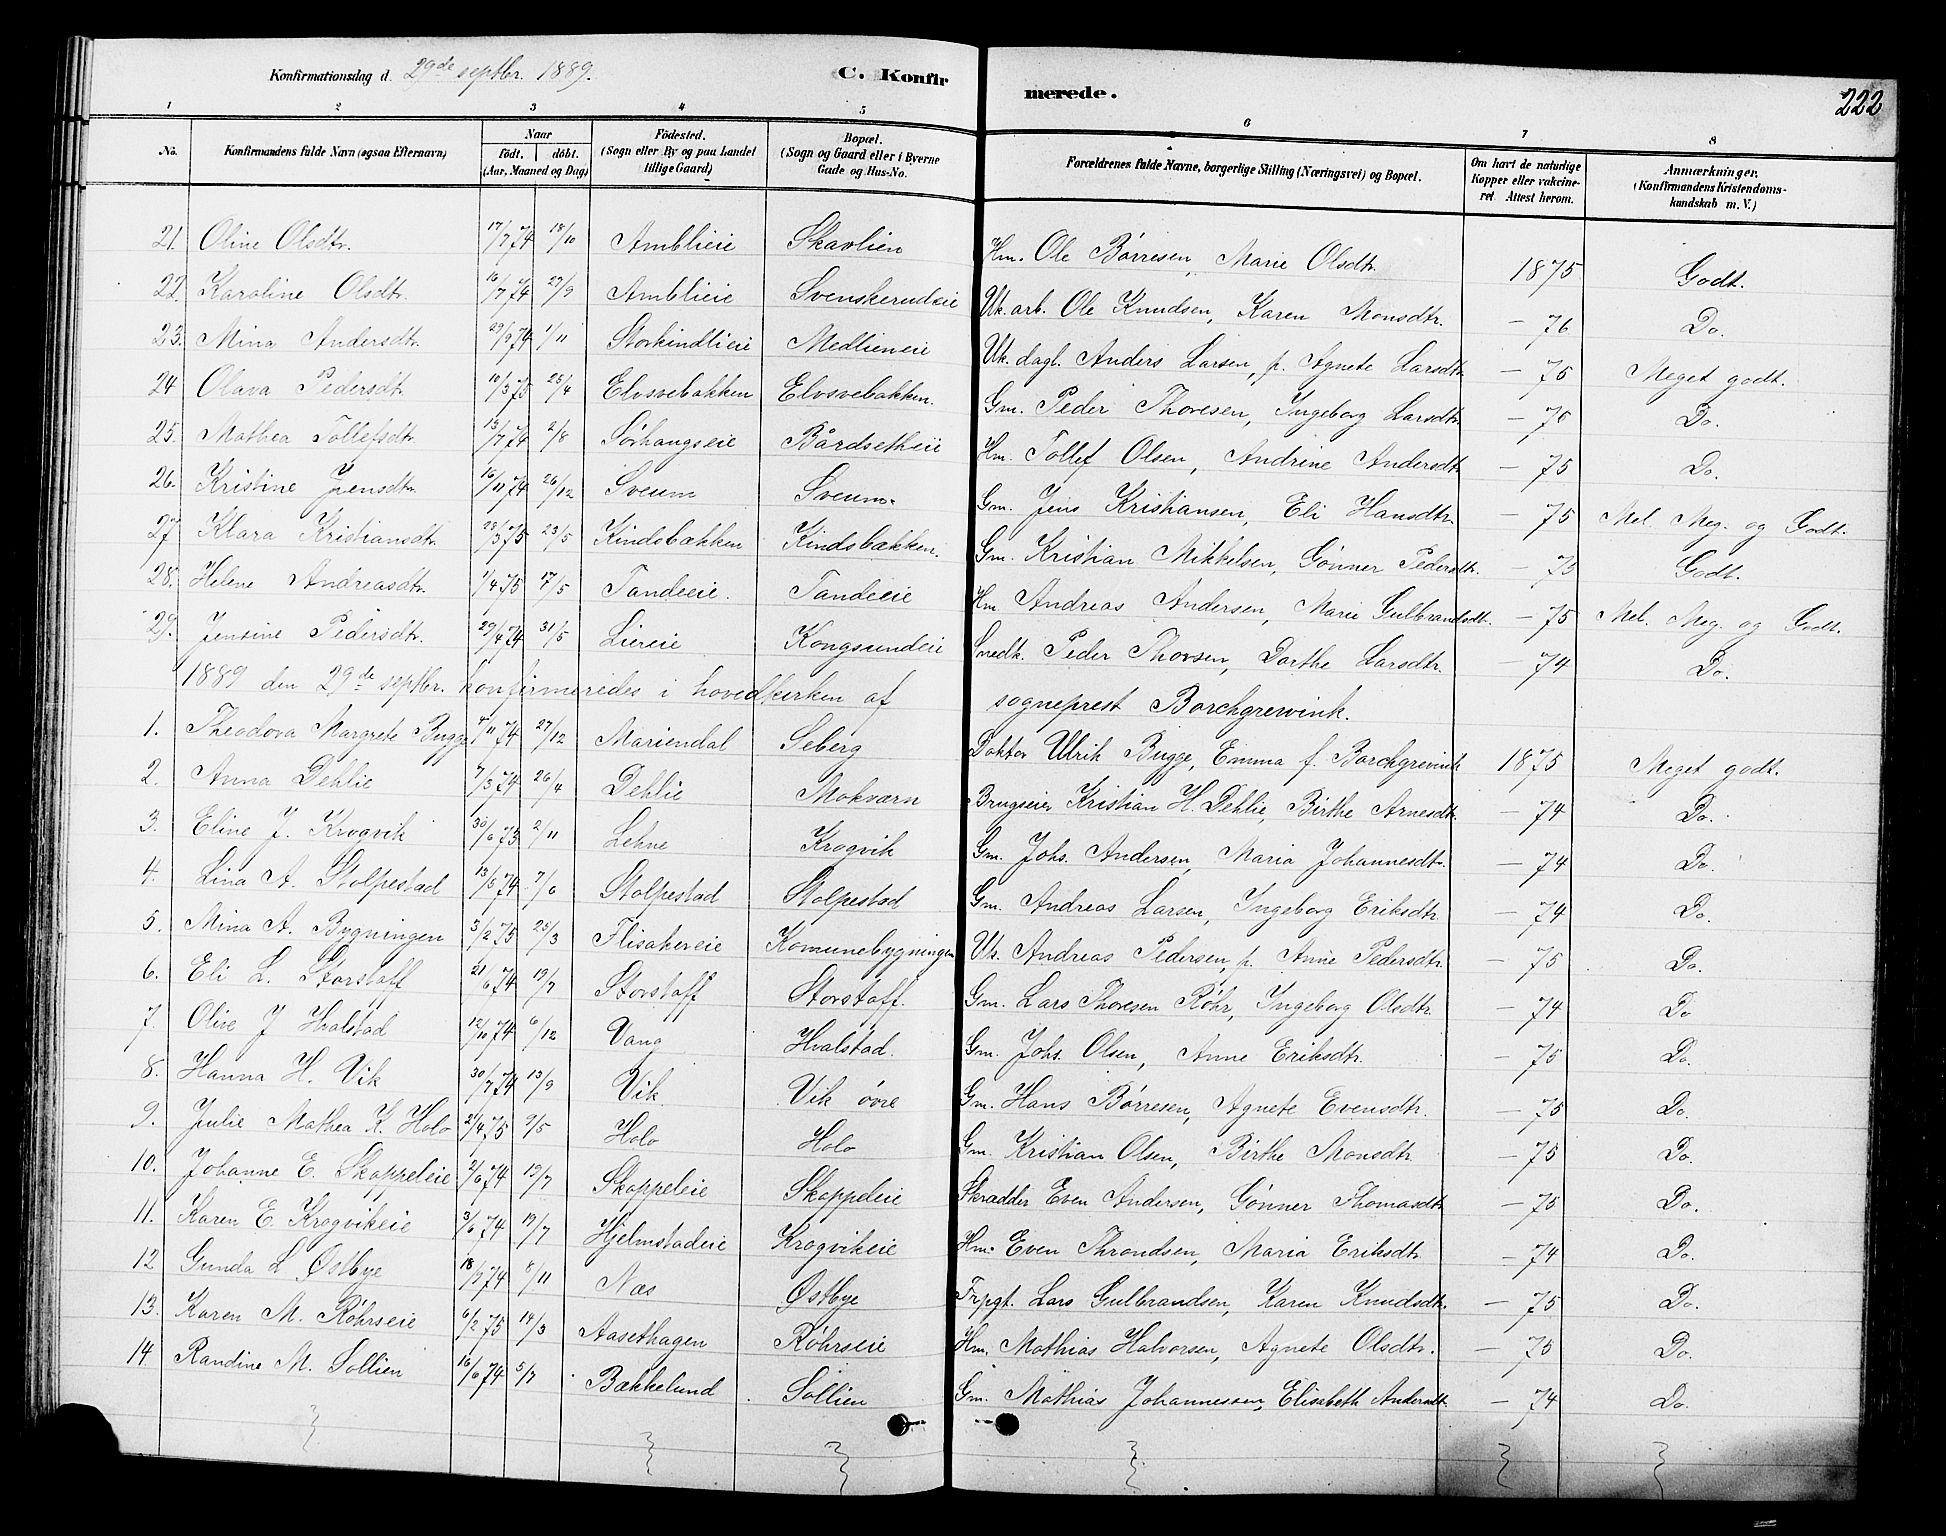 Konfirmationsdag d. 29de septbr. 1889. C. Konfirmerede. 222
1 2 3 4 5 6 7 8
No. Konfirmandens fulde Navn (ogsaa Efternavn) Naar födt. döbt. (Aar, Maaned og Dag) Födested. (Sogn eller By og paa Landet tillige Gaard) Bopæl. (Sogn og Gaard eller i Byerne Gade og Hus-No. Forældrenes fulde Navne, borgerlige Stilling (Næringsvei) og Bopæl. Om havt de naturlige Kopper eller vakcineret. Attest herom. Anmærkninger. (Konfirmandens Kristendomskundskab m. V.)
21. Oline Olsdtr. 17/7 74 18/10 Amblieie Skavlien Hm. Ole Börresen, Marie Olsdtr. 1875 Godt.
22. Karoline Olsdtr. 16/7 74 27/9 Amblieie Svenskerudeie Uk. arb. Ole Knudsen, Karen Monsdtr. — 76 Do.
23. Mina Andersdtr. 29/9 74 1/11 Storkindlieie Medlieneie Uk. dagl. Anders Larsen, p. Agnete Larsdtr. — 75 Meget godt.
24 Olava Pedersdt. 10/3 75 25/4 Elvsvebakken Elvsvebakken. Gm. Peder Thoresen, Ingeborg Larsdtr. — 75 Do.
25. Mathea Tollefsdtr. 13/7 74 2/8 Sørhangseie Bårdsetheie Hm. Tollef Olsen, Andrine Andersdtr. — 75 Do.
26. Kristine Jensdtr. 16/11 74 26/12 Sveum Sveum. Gm. Jens Kristiansen, Eli Hansdtr. — 75 Mel. Meg. og Godt.
27 Klara Kristiansdtr. 28/3 75 23/5 Kindsbækken Kindsbækken. Gm. Kristian Mikkelsen, Gönner Pedersdtr. — 75 Godt.
28. Helene Andreasdtr. 1/4 75 17/5 Tandeeie. Tandeeie Hm Andreas Andersen, Marie Gulbrandsdt. — 75 Mel. Meg. og Godt.
29. Jensine Pedersdtr. 29/4 74 31/5 Liereie Kongsundeie Snedk. Peder Thorsen, Dorthe Larsdtr. — 74 Do.
1889 den 29de septbr. konfirmeredes i hovedkirken af sogneprest Borchgrewink.
1. Theodora Margrete Bugge 4/11 74 27/12 Mariendal Seberg Doktor Ulrik Bugge, Emma f. Borchgrevink 1875 Meget godt.
2. Anna Dehlie 7/3 74 26/4 Dehlie Mokværn Brugseier Kristian H. Dehlie, Birthe Arnesdtr. — 74 Do.
3. Eline J. Krogvik 30/6 75 2/11 Lehne Krogvik Gm. Johs. Andersen, Maria Johannesdtr. — 74 Do.
4. Lina A. Stolpestad 13/5 74 7/6 Stolpestad Stolpestad Gm. Andreas Larsen, Ingeborg Eriksdtr. — 74 Do.
5. Mina A. Bygningen 3/2 75 25/3 Flisakereie Komunebygningen Uk. Andreas Pedersen, p. Anne Pedersdtr. — 75 Do.
6. Eli L. Storstaff 21/6 74 19/7 Storstaff Storstaff. Gm. Lars Thoresen Röhr, Ingeborg Olsdtr. — 74 Do
7. Olive J Hvalstad 12/10 74 6/12 Vang Hvalstad. Gm. Johs. Olsen, Anne Eriksdtr. — 75 Do.
8. Hanna H. Vik 30/7 74 13/9 Vik Vik övre Gm. Hans Börresen, Agnete Evensdtr. — 75 Do.
9. Julie Mathea K. Holo 21/4 75 9/5 Holo Holo Gm. Kristian Olsen, Birthe Monsdtr. — 75 Do.
10. Johanne E. Skappeleie 2/6 74 19/7 Skappeleie Skappeleie Skrædder Even Andersen, Gönner Thomasdtr. — 75 Do.
11. Karen E. Krogvikeie 3/6 74 19/7 Hjelmstadeie Krogvikeie Hm. Even Throndsen, Maria Eriksdtr. — 74 Do.
12 Gunda L Østbye 18/9 74 8/11 Næs Østbye Frpgt. Lars Gulbrandsen, Karen Knudsdtr. — 75 Do.
13. Karen M. Röhrseie 6/2 75 14/3 Aasethagen Röhrseie Hm. Mathias Halvorsen, Agnete Olsdtr. — 75 Do.
14 Randine M. Sollien 16/6 74 5/7 Bækkelund Sollien Gm. Mathias Johannessen, Elisabeth Andersdt. — 74 Do.